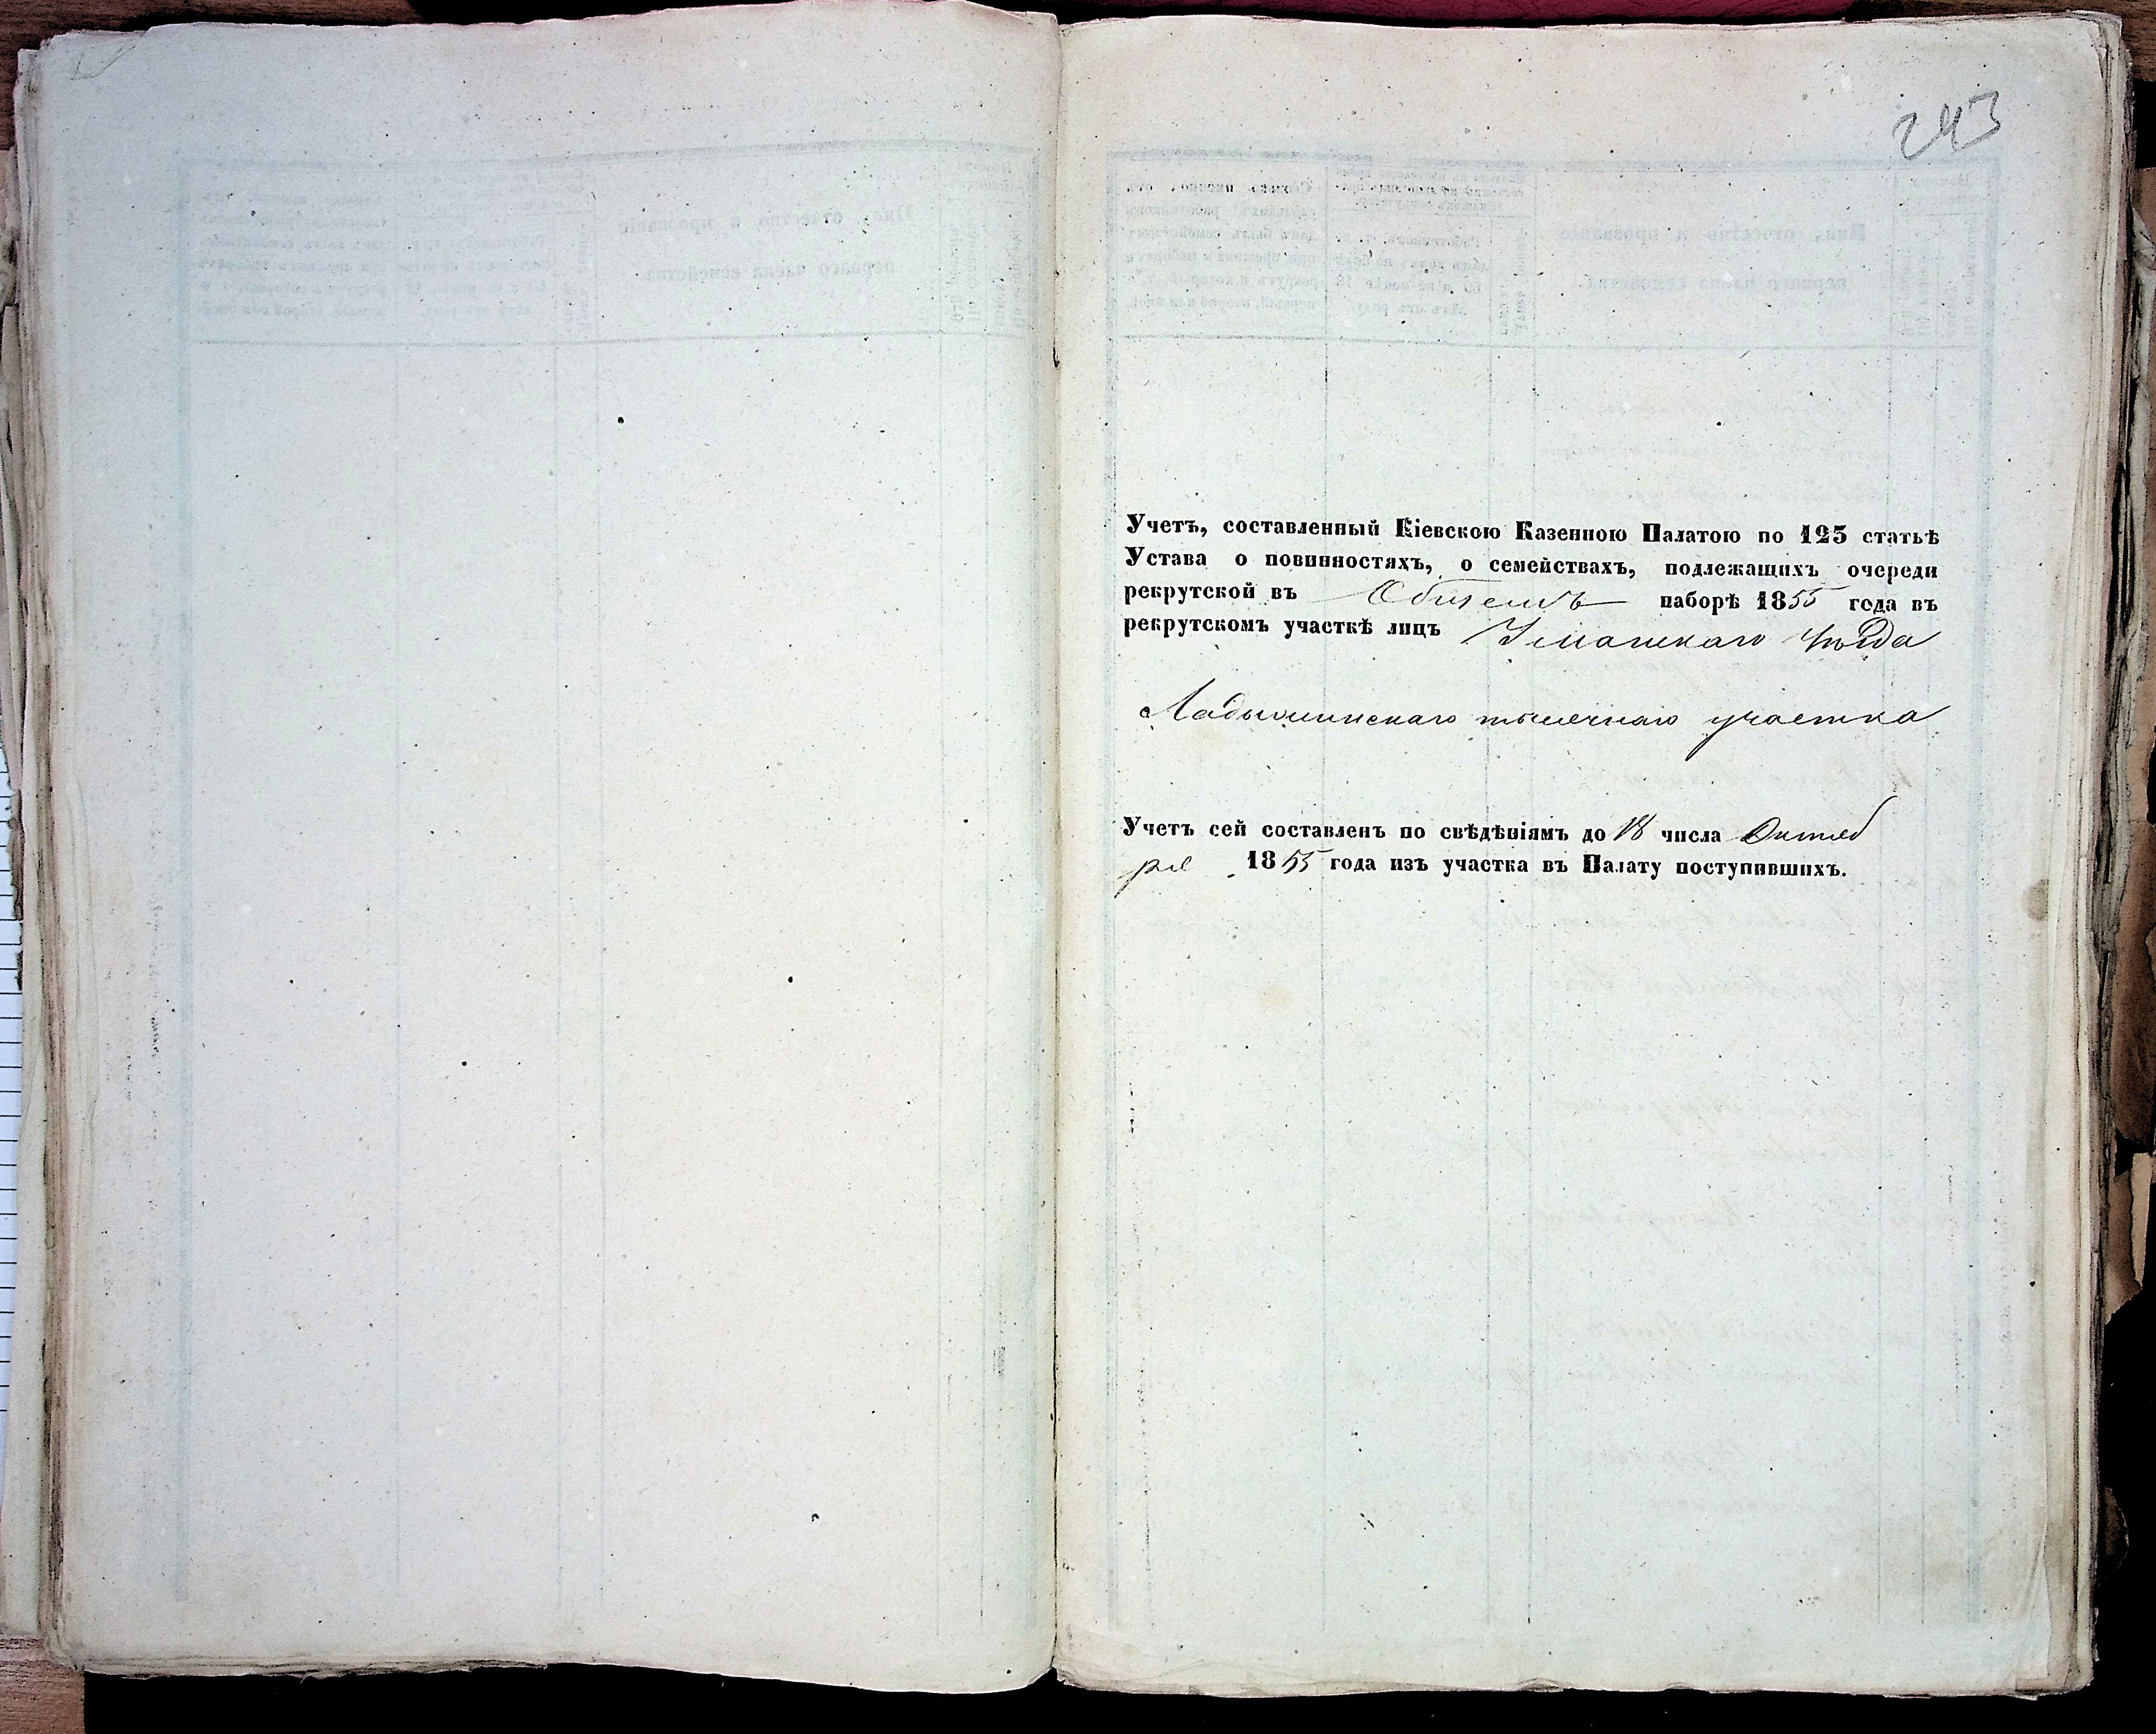 243
Учетъ, составленный Кіевскою Казенною Палатою по 125 статьѣ
Устава о повинностяхъ, о семействахъ, подлежащихъ очереди
рекрутской въ Общемъ наборѣ 1855 года въ
рекрутскомъ участкѣ лицъ Уманскаго уѣзда
Ладыжинскаго тысячнаго участка
Учетъ сей составленъ по свѣдѣніямъ до 18 числа Октяб
ря 1855 года изъ участка въ Палату поступившихъ.